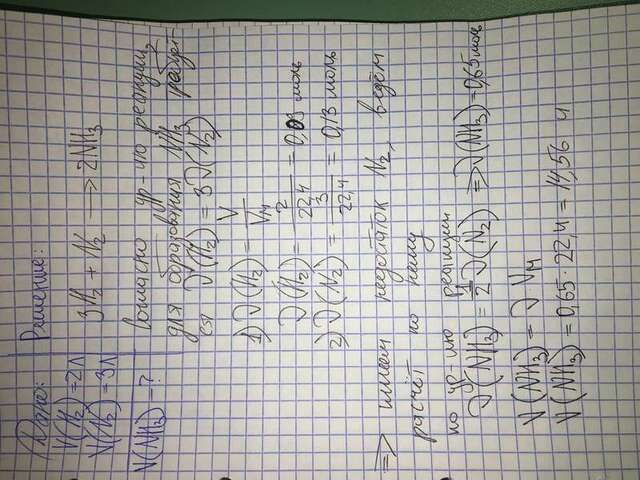 Дано: Решение:
V(H₂) = 2л
V(N₂) = 3л
V(NH₃) - ?
3H₂ + N₂ → 2NH₃
Согласно ур-ию реакции,
для образования NH₃ требует-
ся ν(H₂) = 3ν(N₂)
1) ν(H₂) = V/Vм
ν(H₂) = 2/22,4 = 0,09 моль
2) ν(N₂) = 3/22,4 = 0,13 моль
=> имеем недостаток N₂, ведём
расчёт по нему
по ур-ию реакции
ν(NH₃) = 1/2 ν(N₂) => ν(NH₃) = 0,65 моль
V(NH₃) = ν Vм
V(NH₃) = 0,65 · 22,4 = 14,56